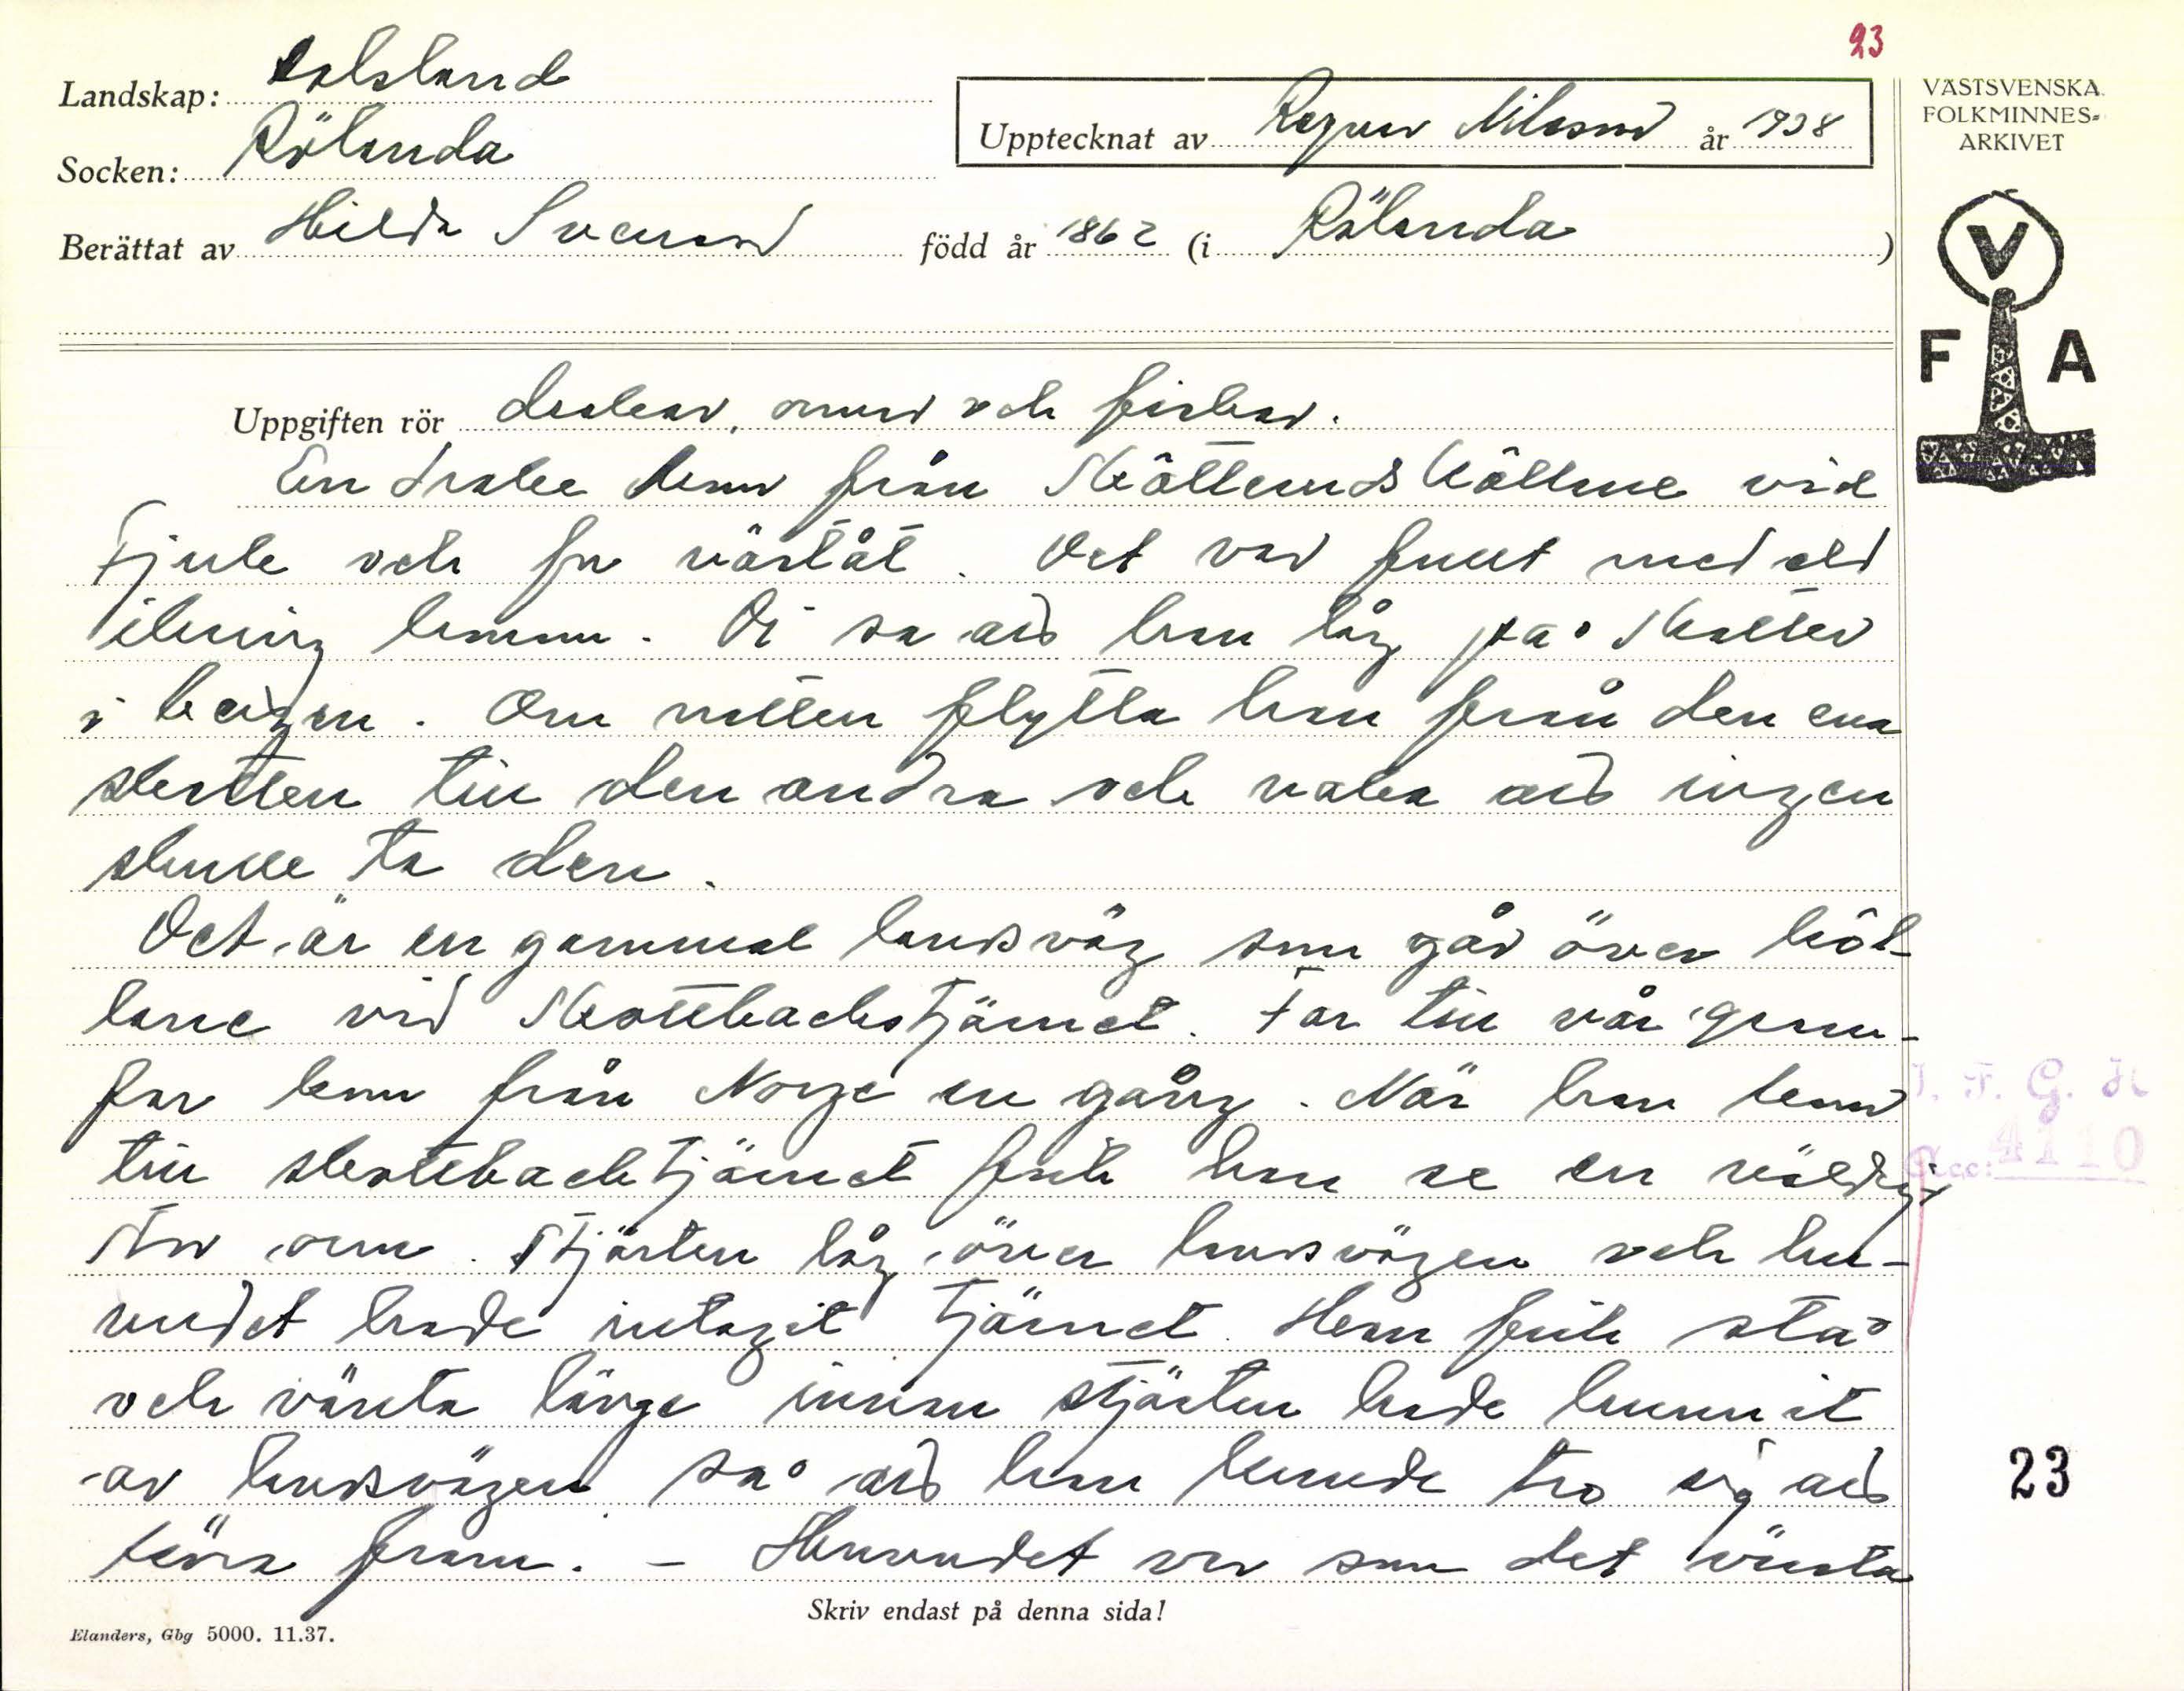 23
Landskap: Dalsland
Socken: Rölanda
Upptecknat av Ragnar Nilsson år 1938
Berättat av Hilda Svensson född år 1862 (i Rölanda)
VÄSTSVENSKA
FOLKMINNES=
ARKIVET
V
F A
Uppgiften rör drakar, ormar och fiskar.
En drake kom från Skôttemds kôllane vid
Fjule och for väståt. Det var fullt med eld
ikring honom. Di sa att han låg på skatter
i bergen. Om natten flytta han från den ena
skatten till den andra och vakta att ingen
skulle ta den.
Det är en gammal landsväg som går över kôl-
lane vid Skottbackstjärnet. Far till vår gran-
far kom från Norge en gång. När han kom
till skottebacktjärnet fick han se en väldigt
stor orm. Stjärten låg över landsvägen och hu-
vudet hade intagit tjärnet. Han fick stå
och vänta länge innan stjärten hade hunnit
av landsvägen så att han kunde tro sig att
köra fram. – Huvudet var som det värsta
J. F. G. H
Acc: 4110
23
Skriv endast på denna sida!
Elanders, Gbg 5000. 11.37.